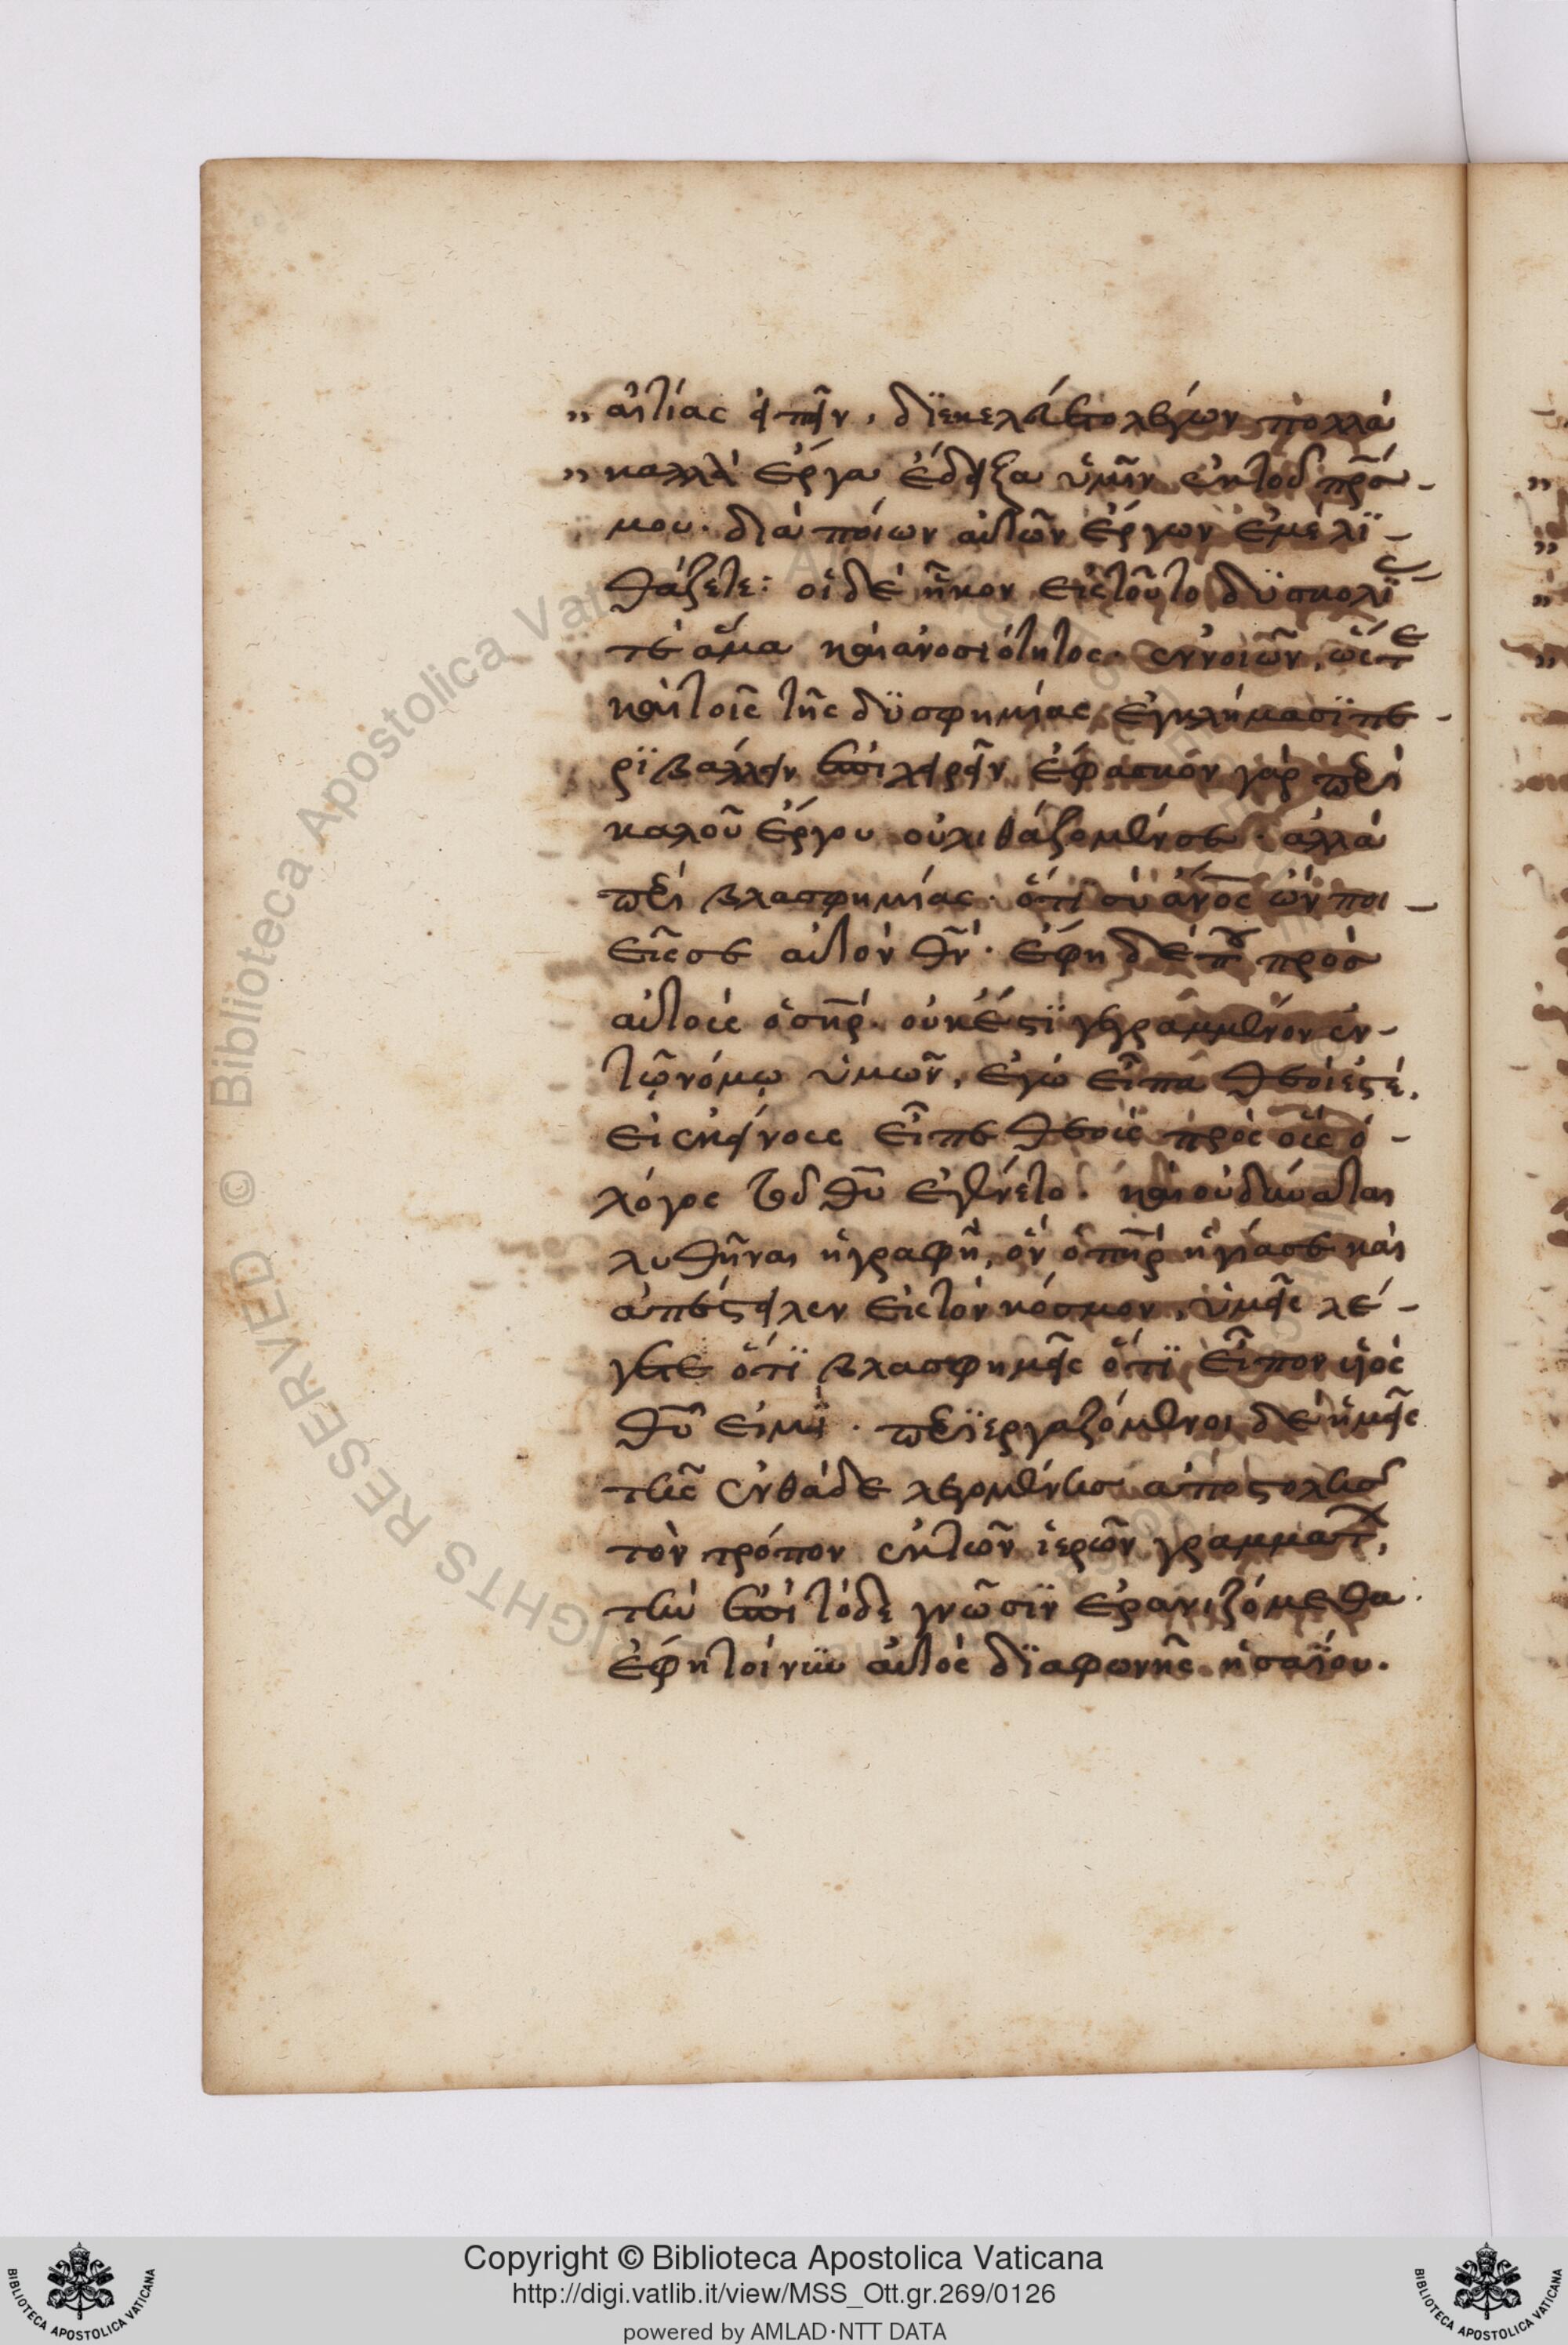 „ αἰτίας εἰπεῖν, διεκελεύετο λέγων πολλὰ
„ καλλὰ ἔργα ἔδειξα ὑμῖν ἐκ τοῦ πρσ
μου· διὰ ποίων αὐτῶν ἔργων ἐμὲ λι-
θάζετε: οἱ δὲ ἧκον εἰς τοῦτο δυσκολί
τε ἅμα καὶ ἀνοσιότητος· ἐννοιῶν, ὥστε
καὶ τοῖς τῆς δυσφημίας ἐγκλήμασι πε-
ριβάλλειν ἐπιχειρεῖν ἔφασκον γὰρ περὶ
καλοῦ ἔργου οὐ λιθάζομέν σε· ἀλλὰ
περὶ βλασφημίας· ὅτι σὺ ἄνος ὢν ποι-
εῖς σε αὐτὸν θν· ἔφη δὲ που πρὸς
αὐτοὺς ὁ σηρ· οὐκ ἔστι γεγραμμένον ἐν
τῷ νόμῳ ὑμῶν, ἐγὼ εἶπα θεοί ἐστέ,
εἰ ἐκείνους εἶπε θεοὺς πρὸς οὓς ὁ -
λόγος τοῦ θυ ἐγένετο· καὶ οὐ δύναται
λυθῆναι ἡ γραφή, ὃν ὁ πηρ ἡγίασε καὶ
ἀπέστειλεν εἰς τὸν κόσμον, ὑμεῖς λέ-
γετε ὅτι βλασφημεῖς ὅτι εἶπον υἱὸς
θυ εἰμί · περιεργαζόμενοι δὲ ἡμεῖς
τῆς ἐνθάδε λεγομένης ἀποστολῆς
τὸν τρόπον ἐκ τῶν ἱερῶν γραμμάτ,
τὴν ἐπὶ τόδε γνῶσιν ἐρανιζόμεθα·
ἔφη τοίνυν αὐτὸς διὰ φωνῆς ἡσαΐου.
Copyright © Biblioteca Apostolica Vaticana
http://digi.vatlib.it/view/MSS_Ott.gr.269/0126
powered by AMLAD·NTT DATA